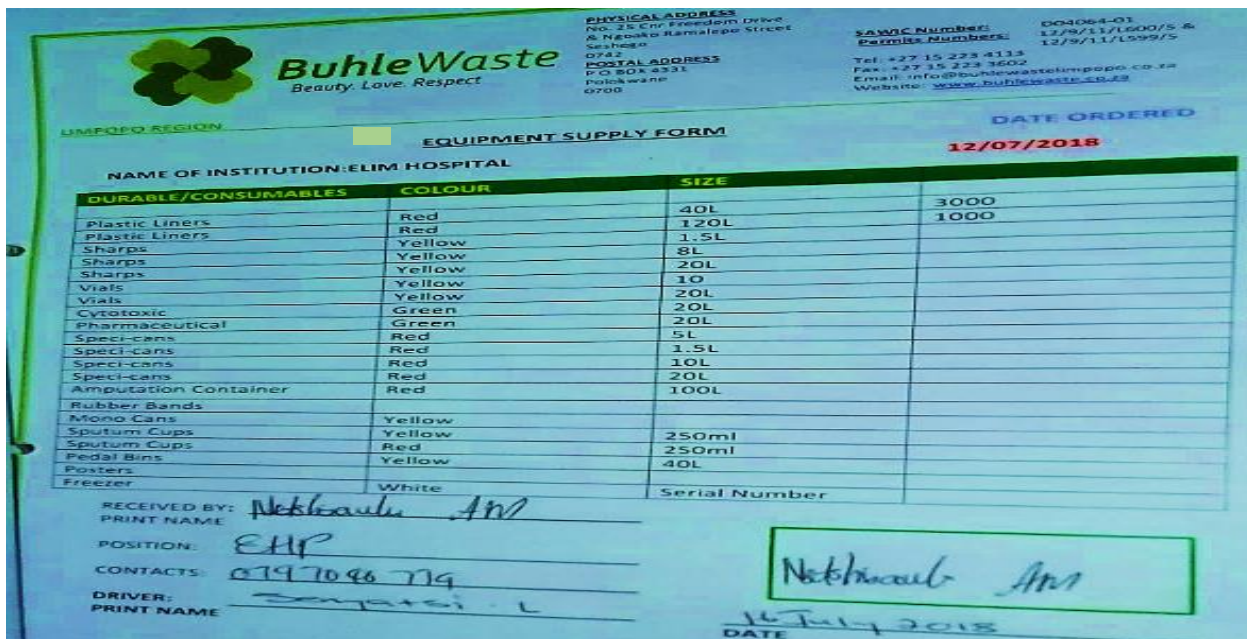 PHYSICAL ADDRESS
No. 25 Cnr Freedom Drive
& Ngoako Ramalepo Street
Seshego
0742
POSTAL ADDRESS
P O BOX 4331
Polokwane
0700
SAWIC Number: D04064-01
Permits Numbers: 12/9/11/L600/5 &
12/9/11/L599/5
Tel: +27 15 223 4113
Fax: +27 15 223 3602
Email: info@buhlewastelimpopo.co.za
Website: www.buhlewaste.co.za
BuhleWaste
Beauty. Love. Respect
LIMPOPO REGION
EQUIPMENT SUPPLY FORM
DATE ORDERED
12/07/2018
NAME OF INSTITUTION:ELIM HOSPITAL
DURABLE/CONSUMABLES COLOUR SIZE
Plastic Liners Red 40L 3000
Plastic Liners Red 120L 1000
Sharps Yellow 1.5L
Sharps Yellow 8L
Sharps Yellow 20L
Vials Yellow 10
Vials Yellow 20L
Cytotoxic Green 20L
Pharmaceutical Green 20L
Speci-cans Red 5L
Speci-cans Red 1.5L
Speci-cans Red 10L
Speci-cans Red 20L
Amputation Container Red 100L
Rubber Bands
Mono Cans Yellow
Sputum Cups Yellow 250ml
Sputum Cups Red 250ml
Pedal Bins Yellow 40L
Posters
Freezer White Serial Number
RECEIVED BY: AM
PRINT NAME
POSITION: EHP
CONTACTS: 0797046 779
DRIVER: L
PRINT NAME
AM
16 July 2018
DATE